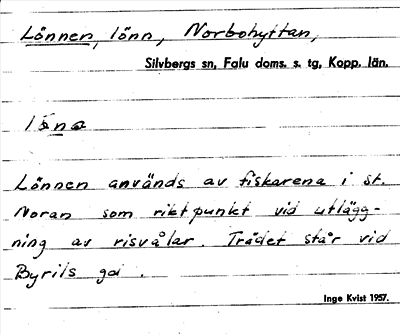 Lönnen, lönn, Norbohyttan,
Silvbergs sn, Falu doms. s. tg, Kopp. län.
Lönnen används av fiskarena i st.
Noran som riktpunkt vid utlägg-
ning av risvålar. Trädet står vid
Byrils gd.
Inge Kvist 1957.